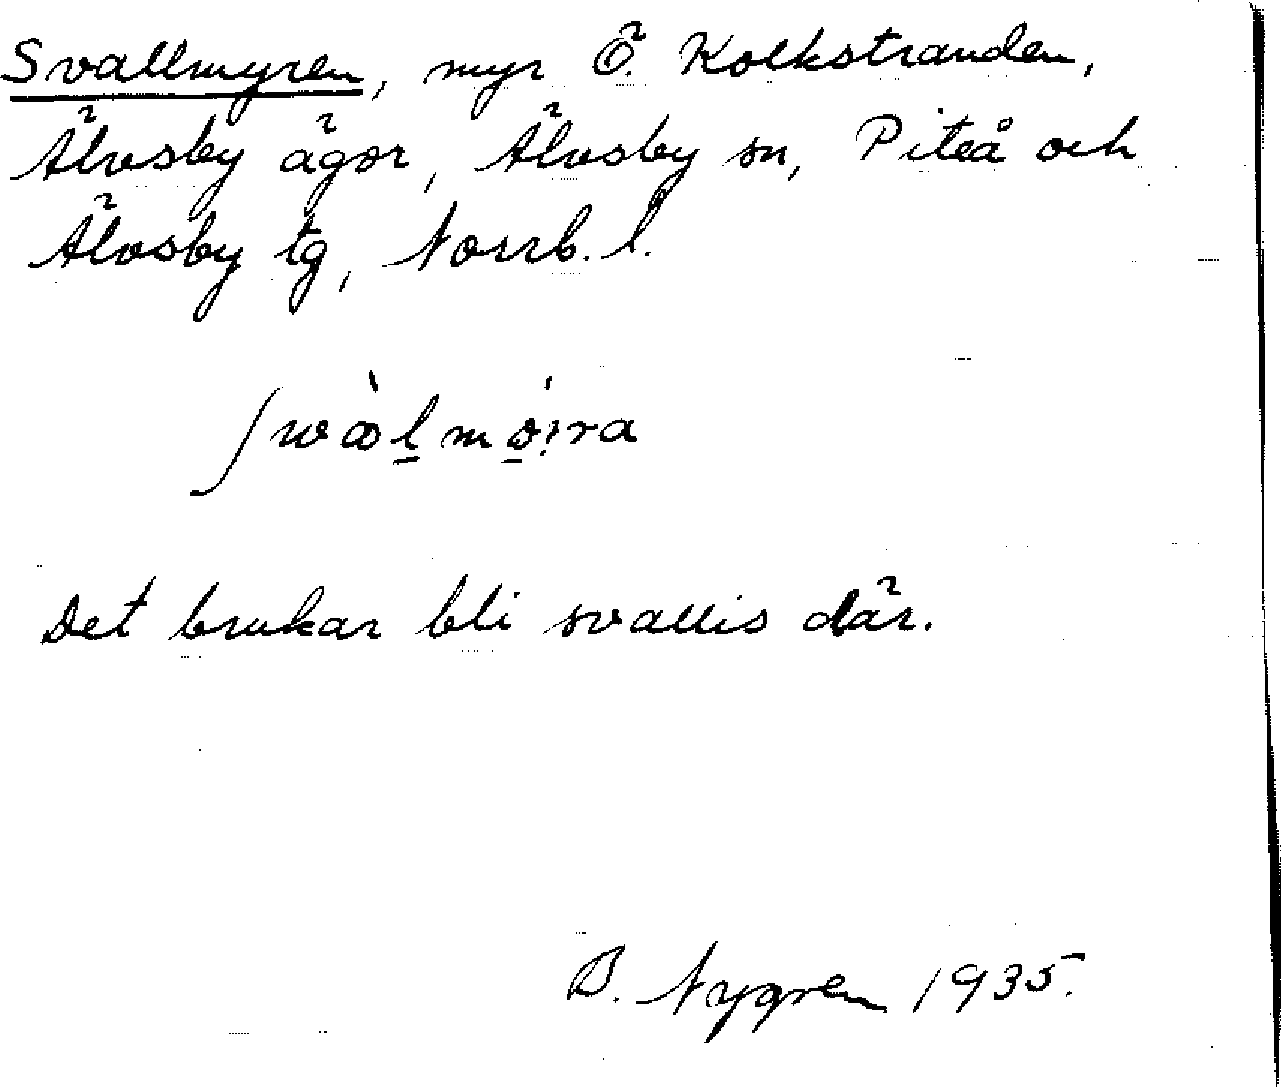 Svallmyren, myr Ö. Kolkstranden,
Älvsby ägor, Älvsby sn, Piteå och
Älvsby tg, Norrb. l.
Det brukar bli svallis där.
B. Nygren 1935.